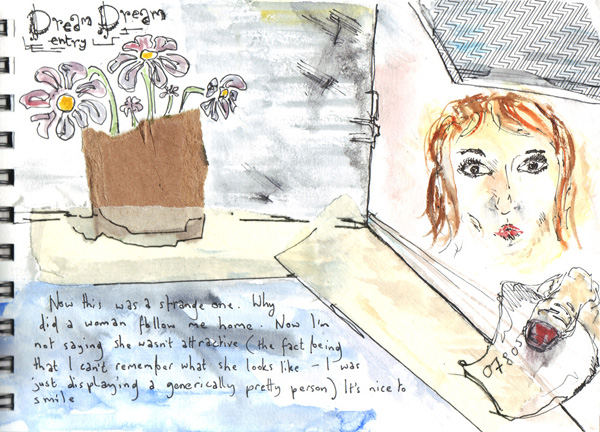 Dream Dream
entry
Now this was a strange one. Why
did a woman follow me home. Now I'm
not saying she wasn't attractive (the fact being
that I can't remember what she looks like – I was
just displaying a generically pretty person) It's nice to
smile
07805